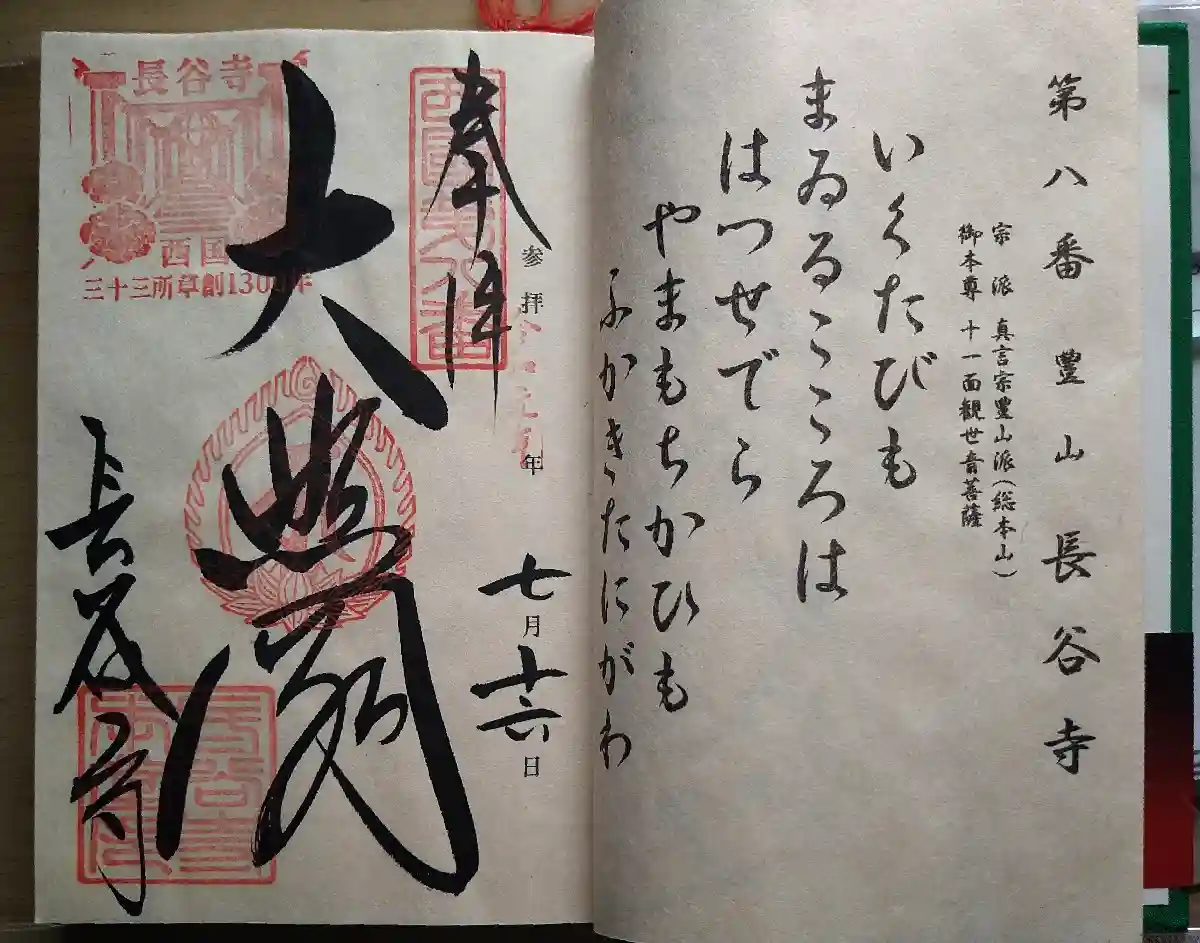 第八番豊山長谷寺
宗派 真言宗豊山派(総本山)
御本尊 十一面観世音菩薩
いくたびも
まゐるこころは
はつせでら
やまもちかひも
ふかきたにがわ
奉拝
西国第八番
参拝令和元年
七月十六日
大悲閣
長谷寺
長谷寺
西国
三十三所草創1300年